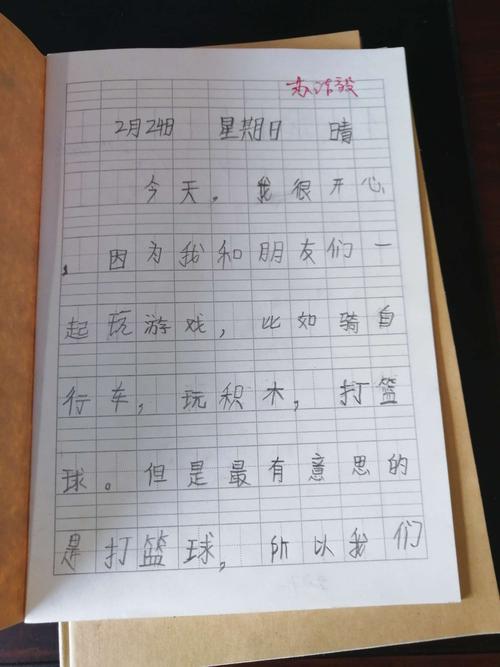 苏沛毅
2月24日 星期日 晴
今天,我很开心
,因为我和朋友们一
起玩游戏,比如骑自
行车,玩积木,打篮
球。但是最有意思的
是打篮球,所以我们